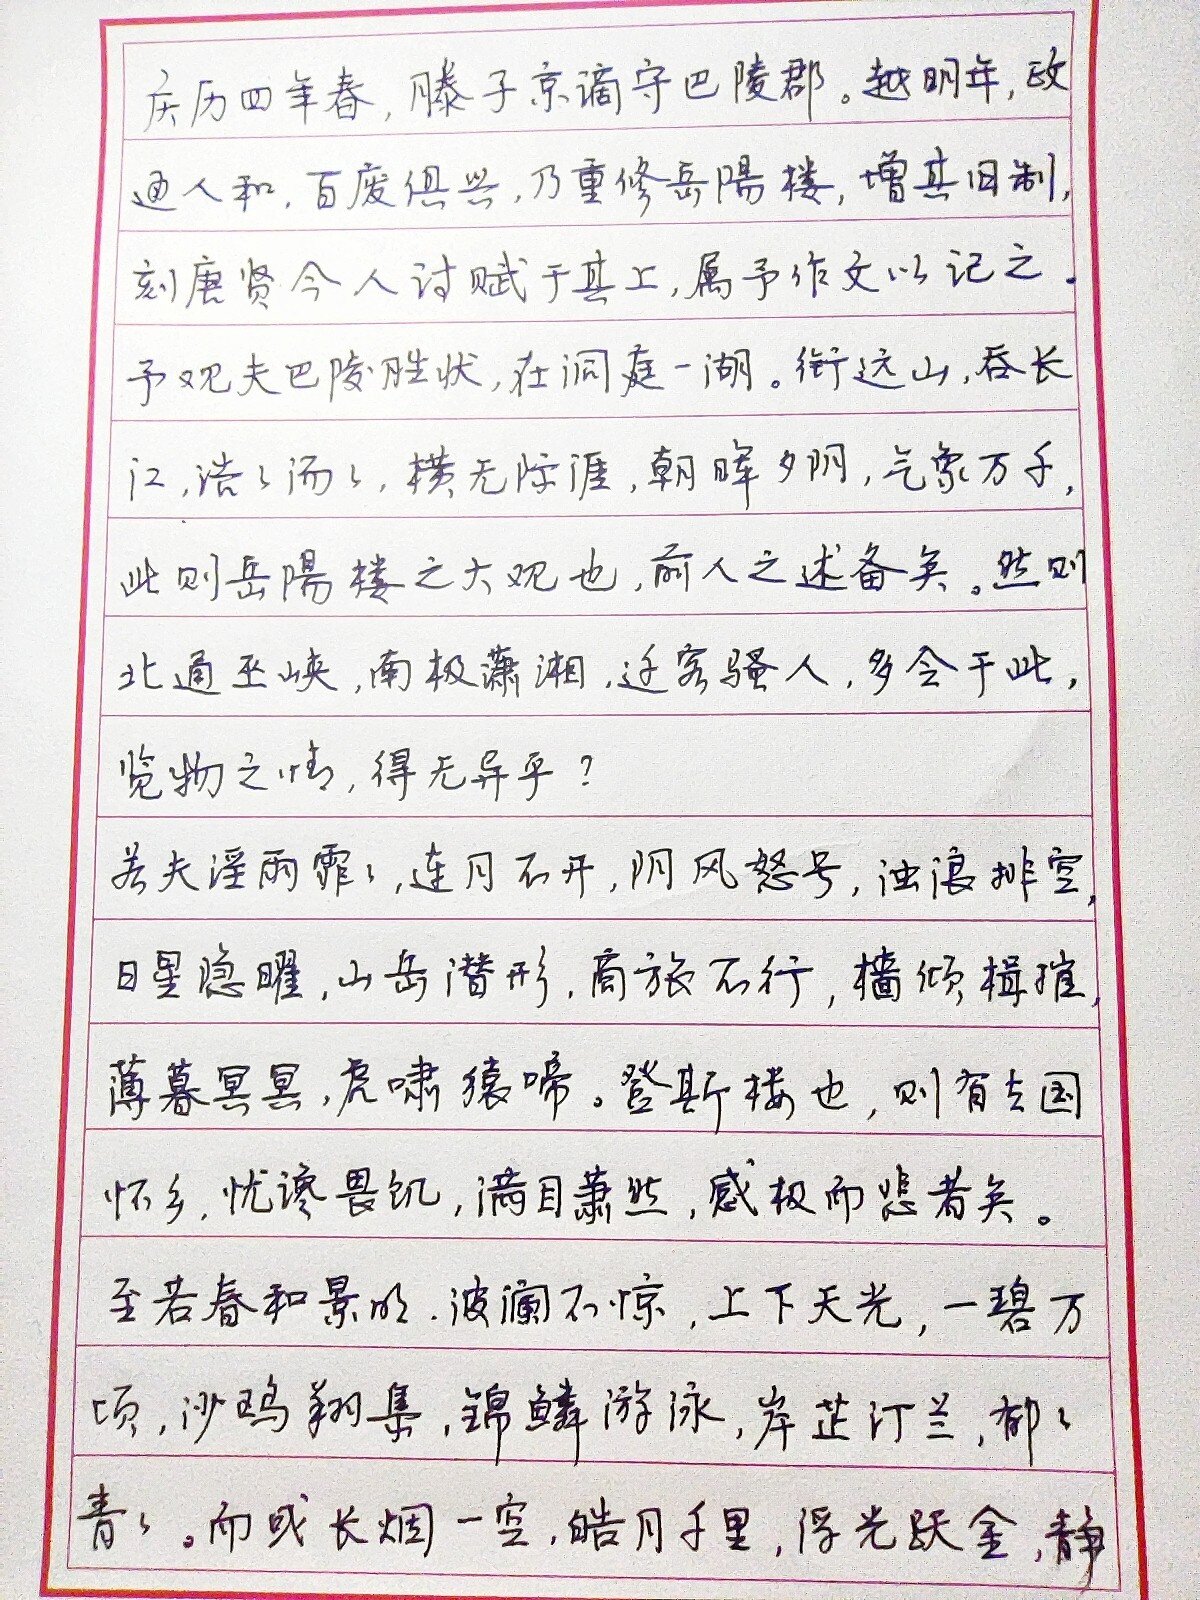 庆历四年春,滕子京谪守巴陵郡。越明年,政
通人和,百废俱兴,乃重修岳陽楼,增其旧制,
刻唐贤今人诗赋于其上,属予作文以记之.
予观夫巴陵胜状,在洞庭一湖。衔远山,吞长
江,浩々汤々,横无际涯,朝晖夕阴,气象万千,
此则岳陽楼之大观也,前人之述备矣。然则
北通巫峡,南极潇湘,迁客骚人,多会于此,
览物之情,得无异乎?
若夫淫雨霏々,连月不开,阴风怒号,浊浪排空,
日星隐曜,山岳潜形,商旅不行,樯倾楫摧,
薄暮冥冥,虎啸猿啼。登斯楼也,则有去国
怀乡,忧谗畏讥,满目萧然,感极而悲者矣。
至若春和景明.波澜不惊,上下天光,一碧万
顷,沙鸥翔集,锦鳞游泳,岸芷汀兰,郁々
青々。而或长烟一空,皓月千里,浮光跃金,静